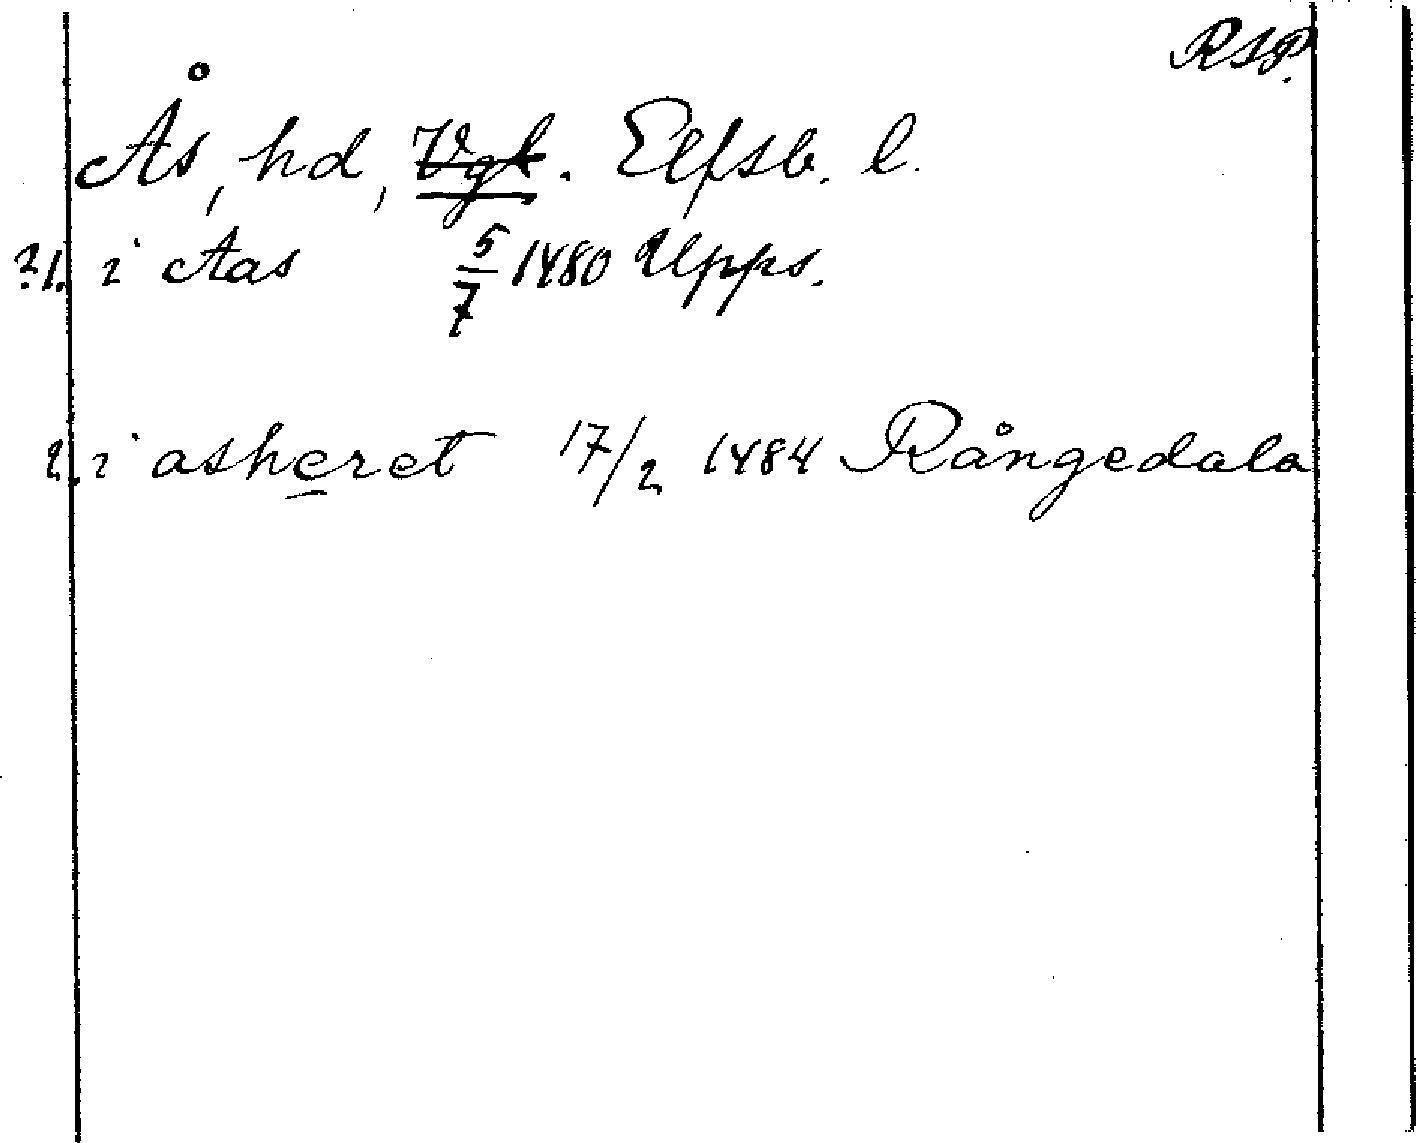 RSP.
Ås, hd, Vgl. Elfsb. l.
?1. i Aas 5/7 1480 Upps.
2. i asheret 17/2 1484 Rångedala